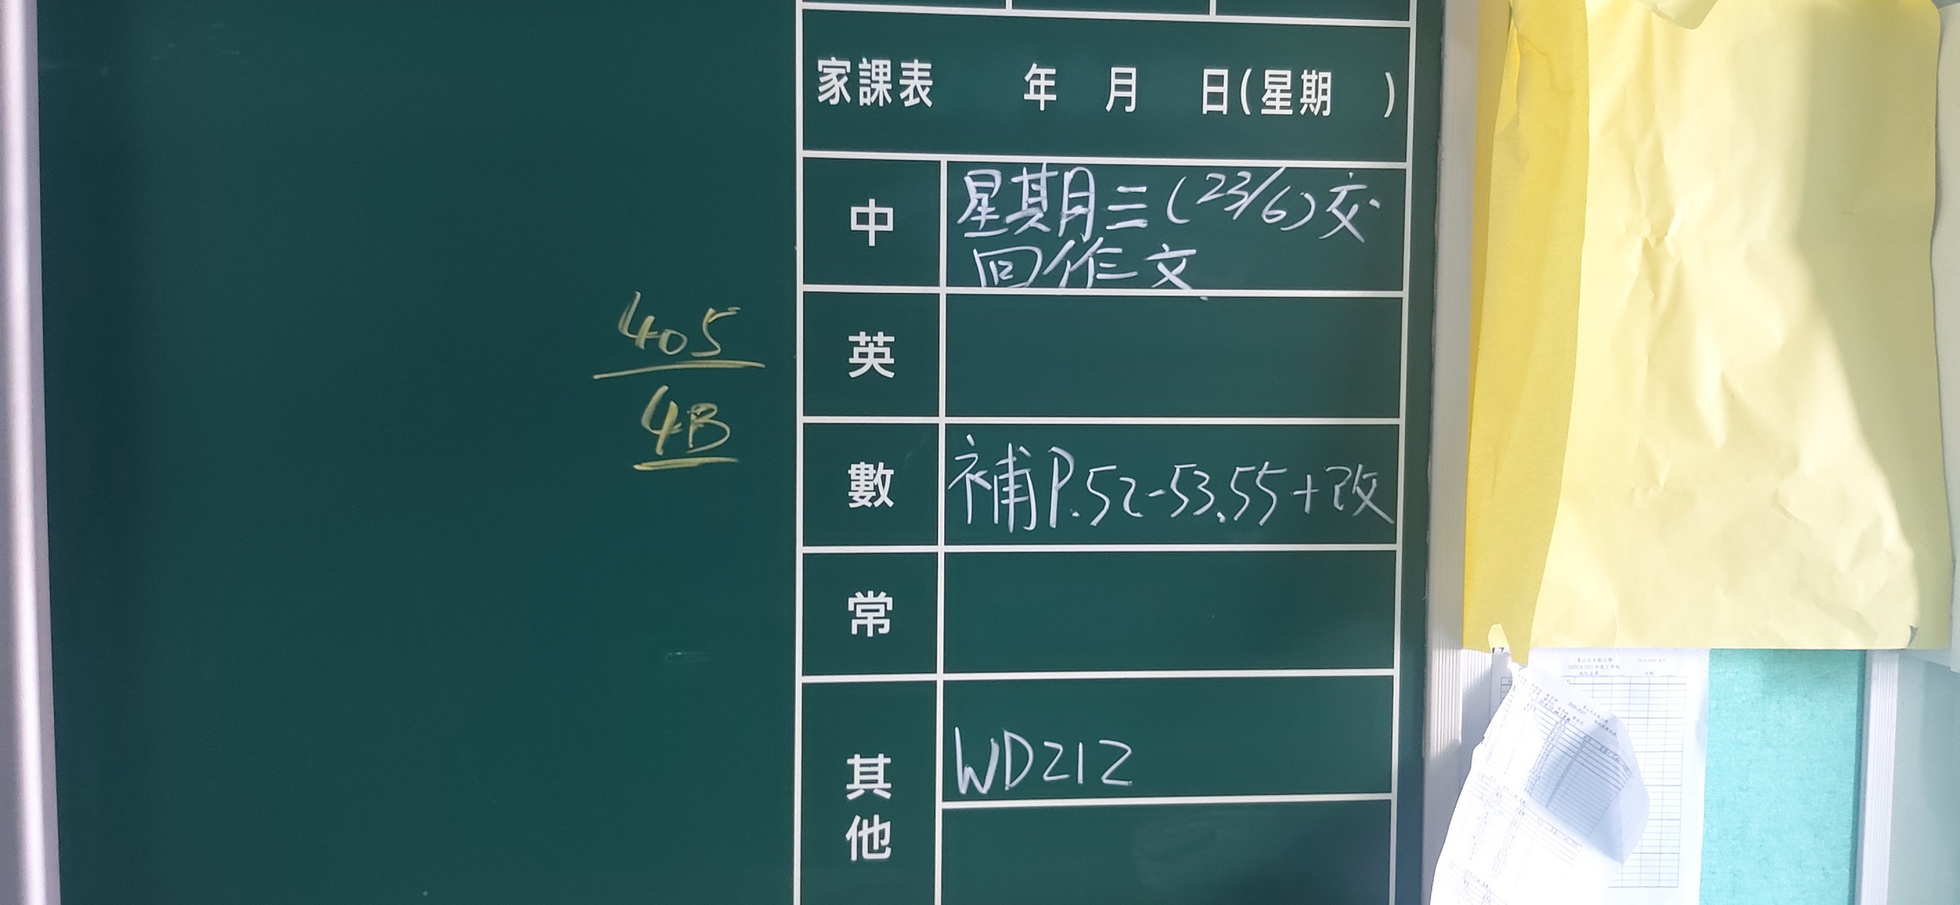 家課表 年 月 日(星期 )
中
星期三(23/6)交
回作文
英
405
4B
數
補P.52-53,55+改
常
其他
WD212